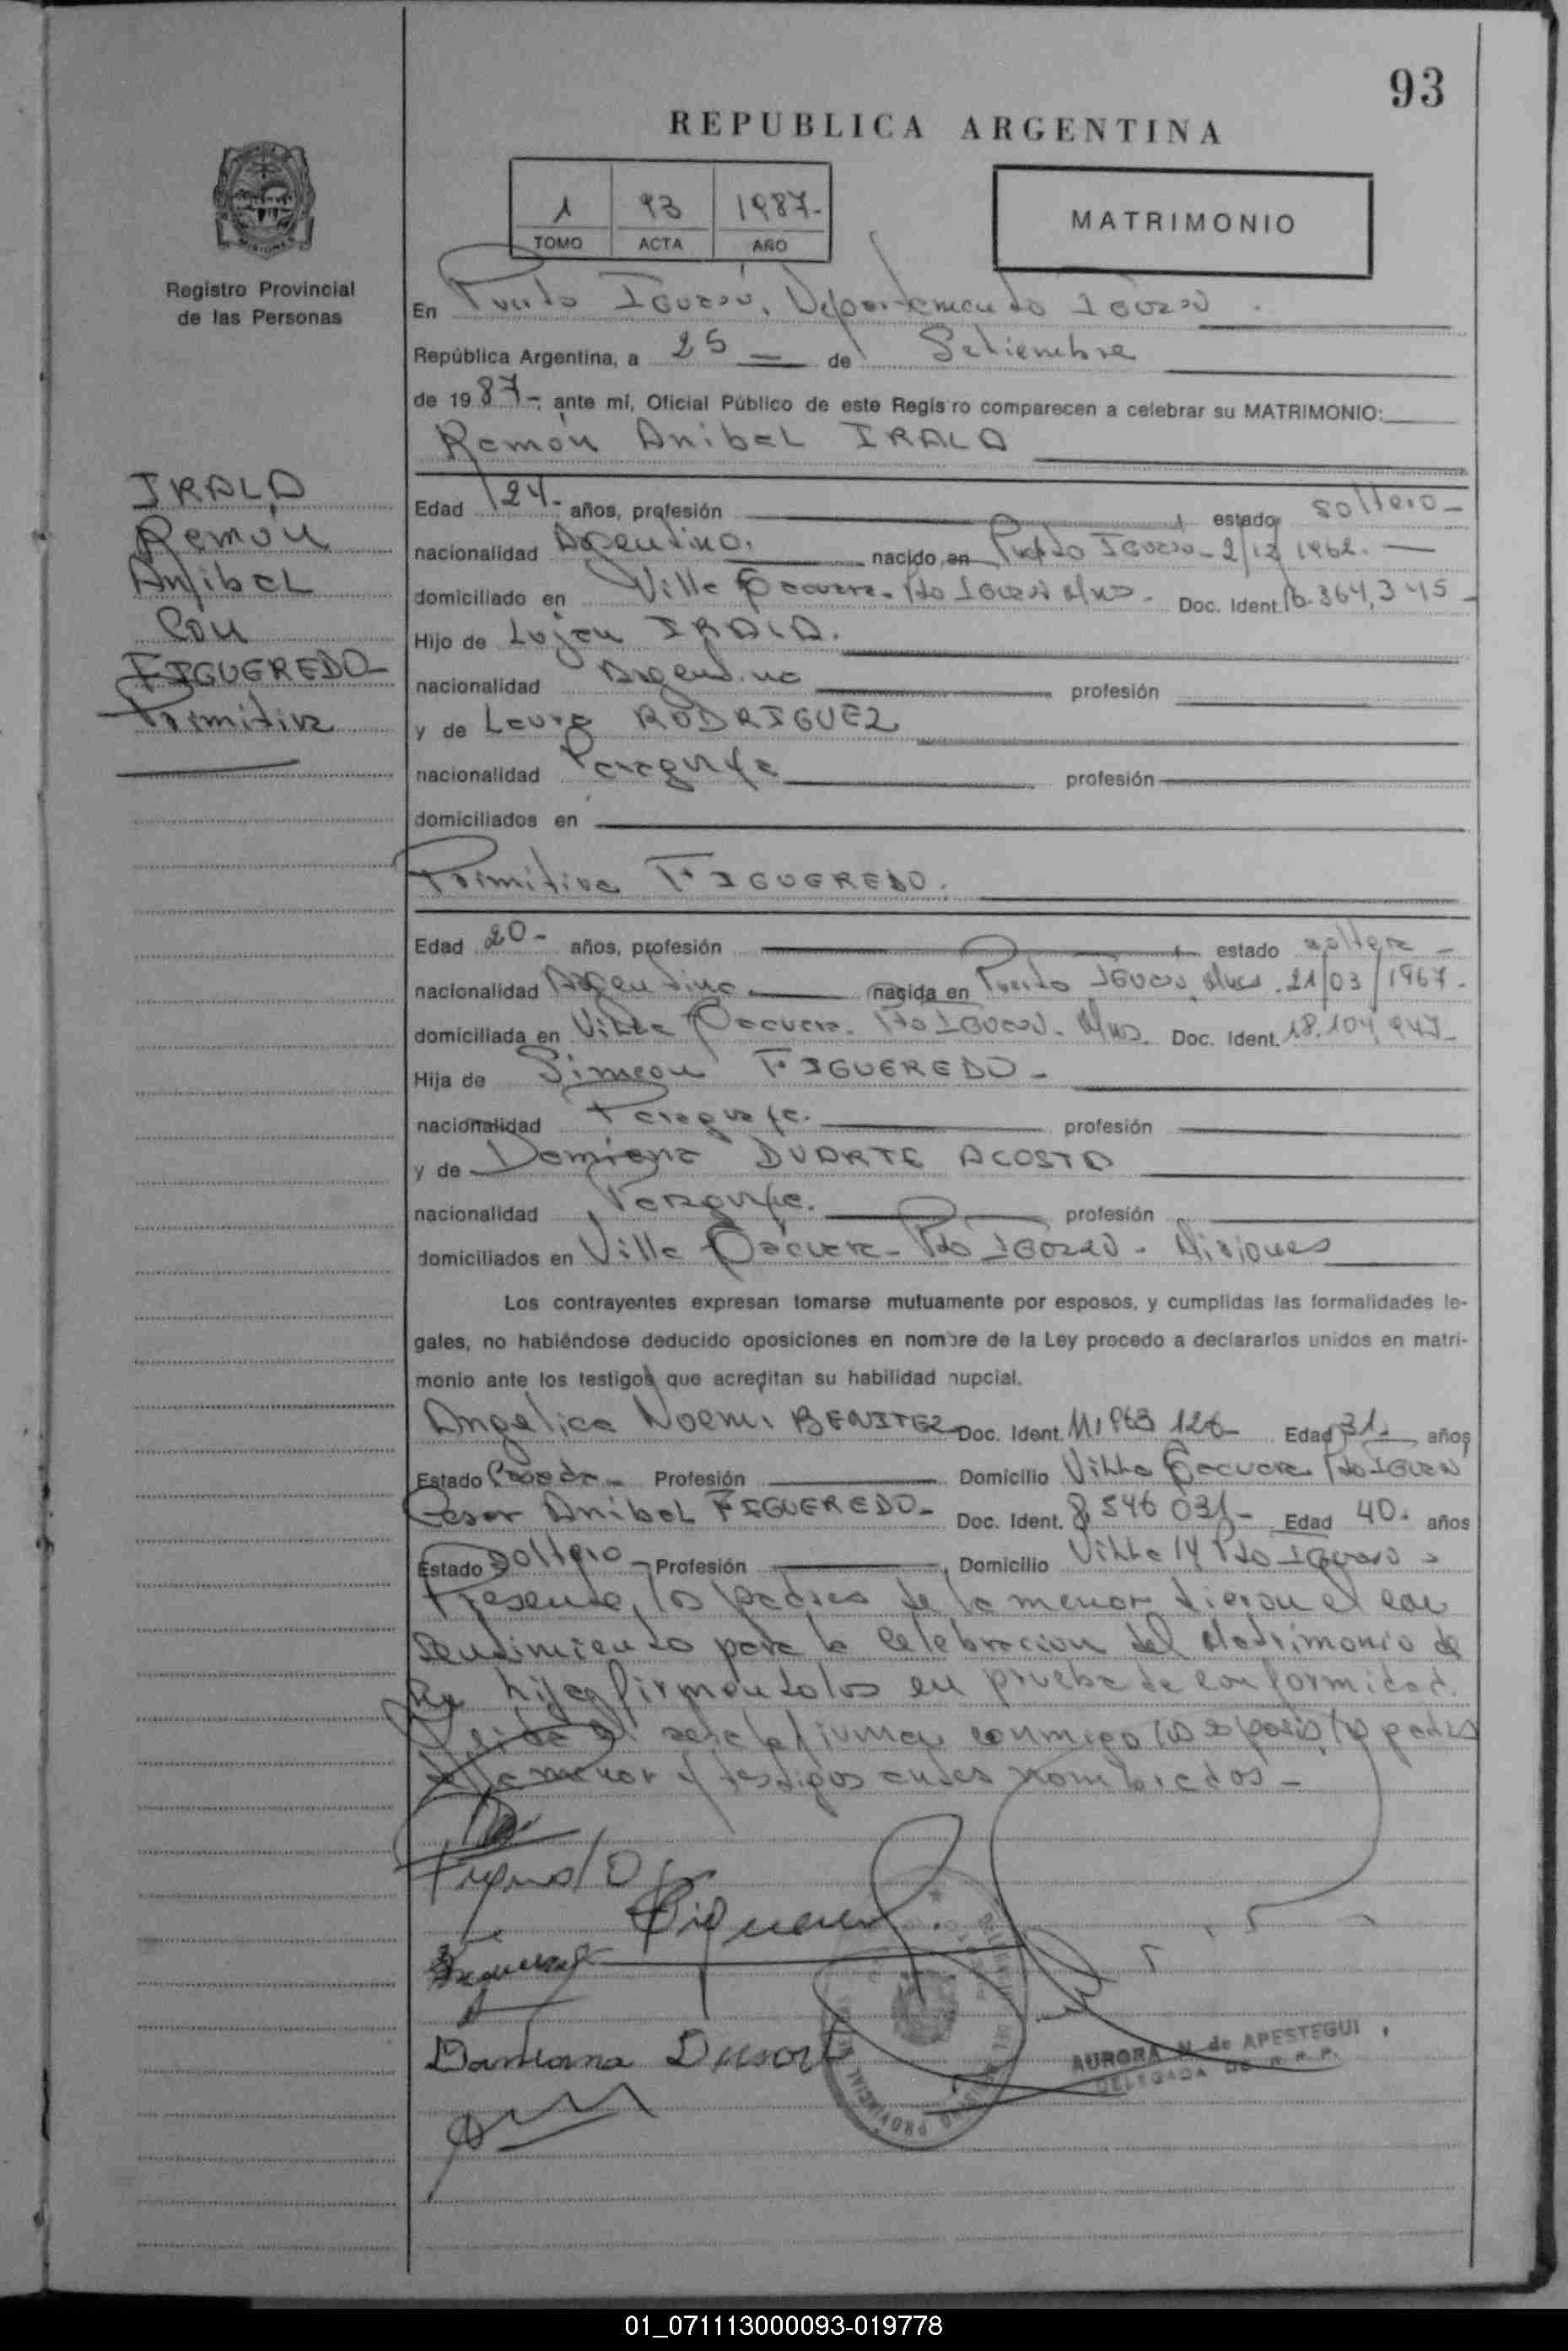 93
REPUBLICA ARGENTINA
1 93 1987-
TOMO ACTA AÑO
MATRIMONIO
MISIONES
Registro Provincial
de las Personas
IRALA
Ramón
Anibal
Con
FIGUEREDO-
Primitiva
En Puerto Iguazú, Departamento Iguazú.
República Argentina, a 25 de Setiembre
de 1987-, ante mí, Oficial Público de este Registro comparecen a celebrar su MATRIMONIO:
Ramón Anibal IRALA
Edad 24- años, profesión estado soltero-
nacionalidad Argentino. nacido en Puerto Iguazú- 2/12/1962.-
domiciliado en Villa Pto Iguazú Mnes. Doc. Ident. 16.364,345-
Hijo de Lujan IRALA.
nacionalidad Argentino profesión
y de Laura RODRIGUEZ
nacionalidad Paraguaya profesión
domiciliados en
Primitiva FIGUEREDO.
Edad 20- años, profesión estado soltera-
nacionalidad Argentina nacida en Puerto Iguazú, Mnes. 21/03/1967-
domiciliada en Villa Pto Iguazú. Mnes. Doc. Ident. 18.104,947-
Hija de Simeon FIGUEREDO-
nacionalidad Paraguaya. profesión
y de Damiana DUARTE ACOSTA
nacionalidad Paraguaya. profesión
domiciliados en Villa Pto Iguazú- Misiones
Los contrayentes expresan tomarse mutuamente por esposos, y cumplidas las formalidades le-
gales, no habiéndose deducido oposiciones en nombre de la Ley procedo a declararlos unidos en matri-
monio ante los testigos que acreditan su habilidad nupcial.
Angelica Noemi BENITEZ Doc. Ident. Edad 31. años
Estado Casada- Profesión Domicilio Villa Pto Iguazú
Cesar Anibal FIGUEREDO- Doc. Ident. 8.546 031- Edad 40. años
Estado Soltero- Profesión , Domicilio Villa 14 Pto Iguazú
Presente, los padres de la menor dieron el con
sentimiento para la celebracion del Matrimonio de
su hija firmandolos en prueba de conformidad.
Leida el acta la firman conmigo los esposos, los padres
de la menor y testigos antes nombrados-
Damiana Duart
AURORA N. de APESTEGUI
DELEGADA DE R. P. P.
01_071113000093-019778